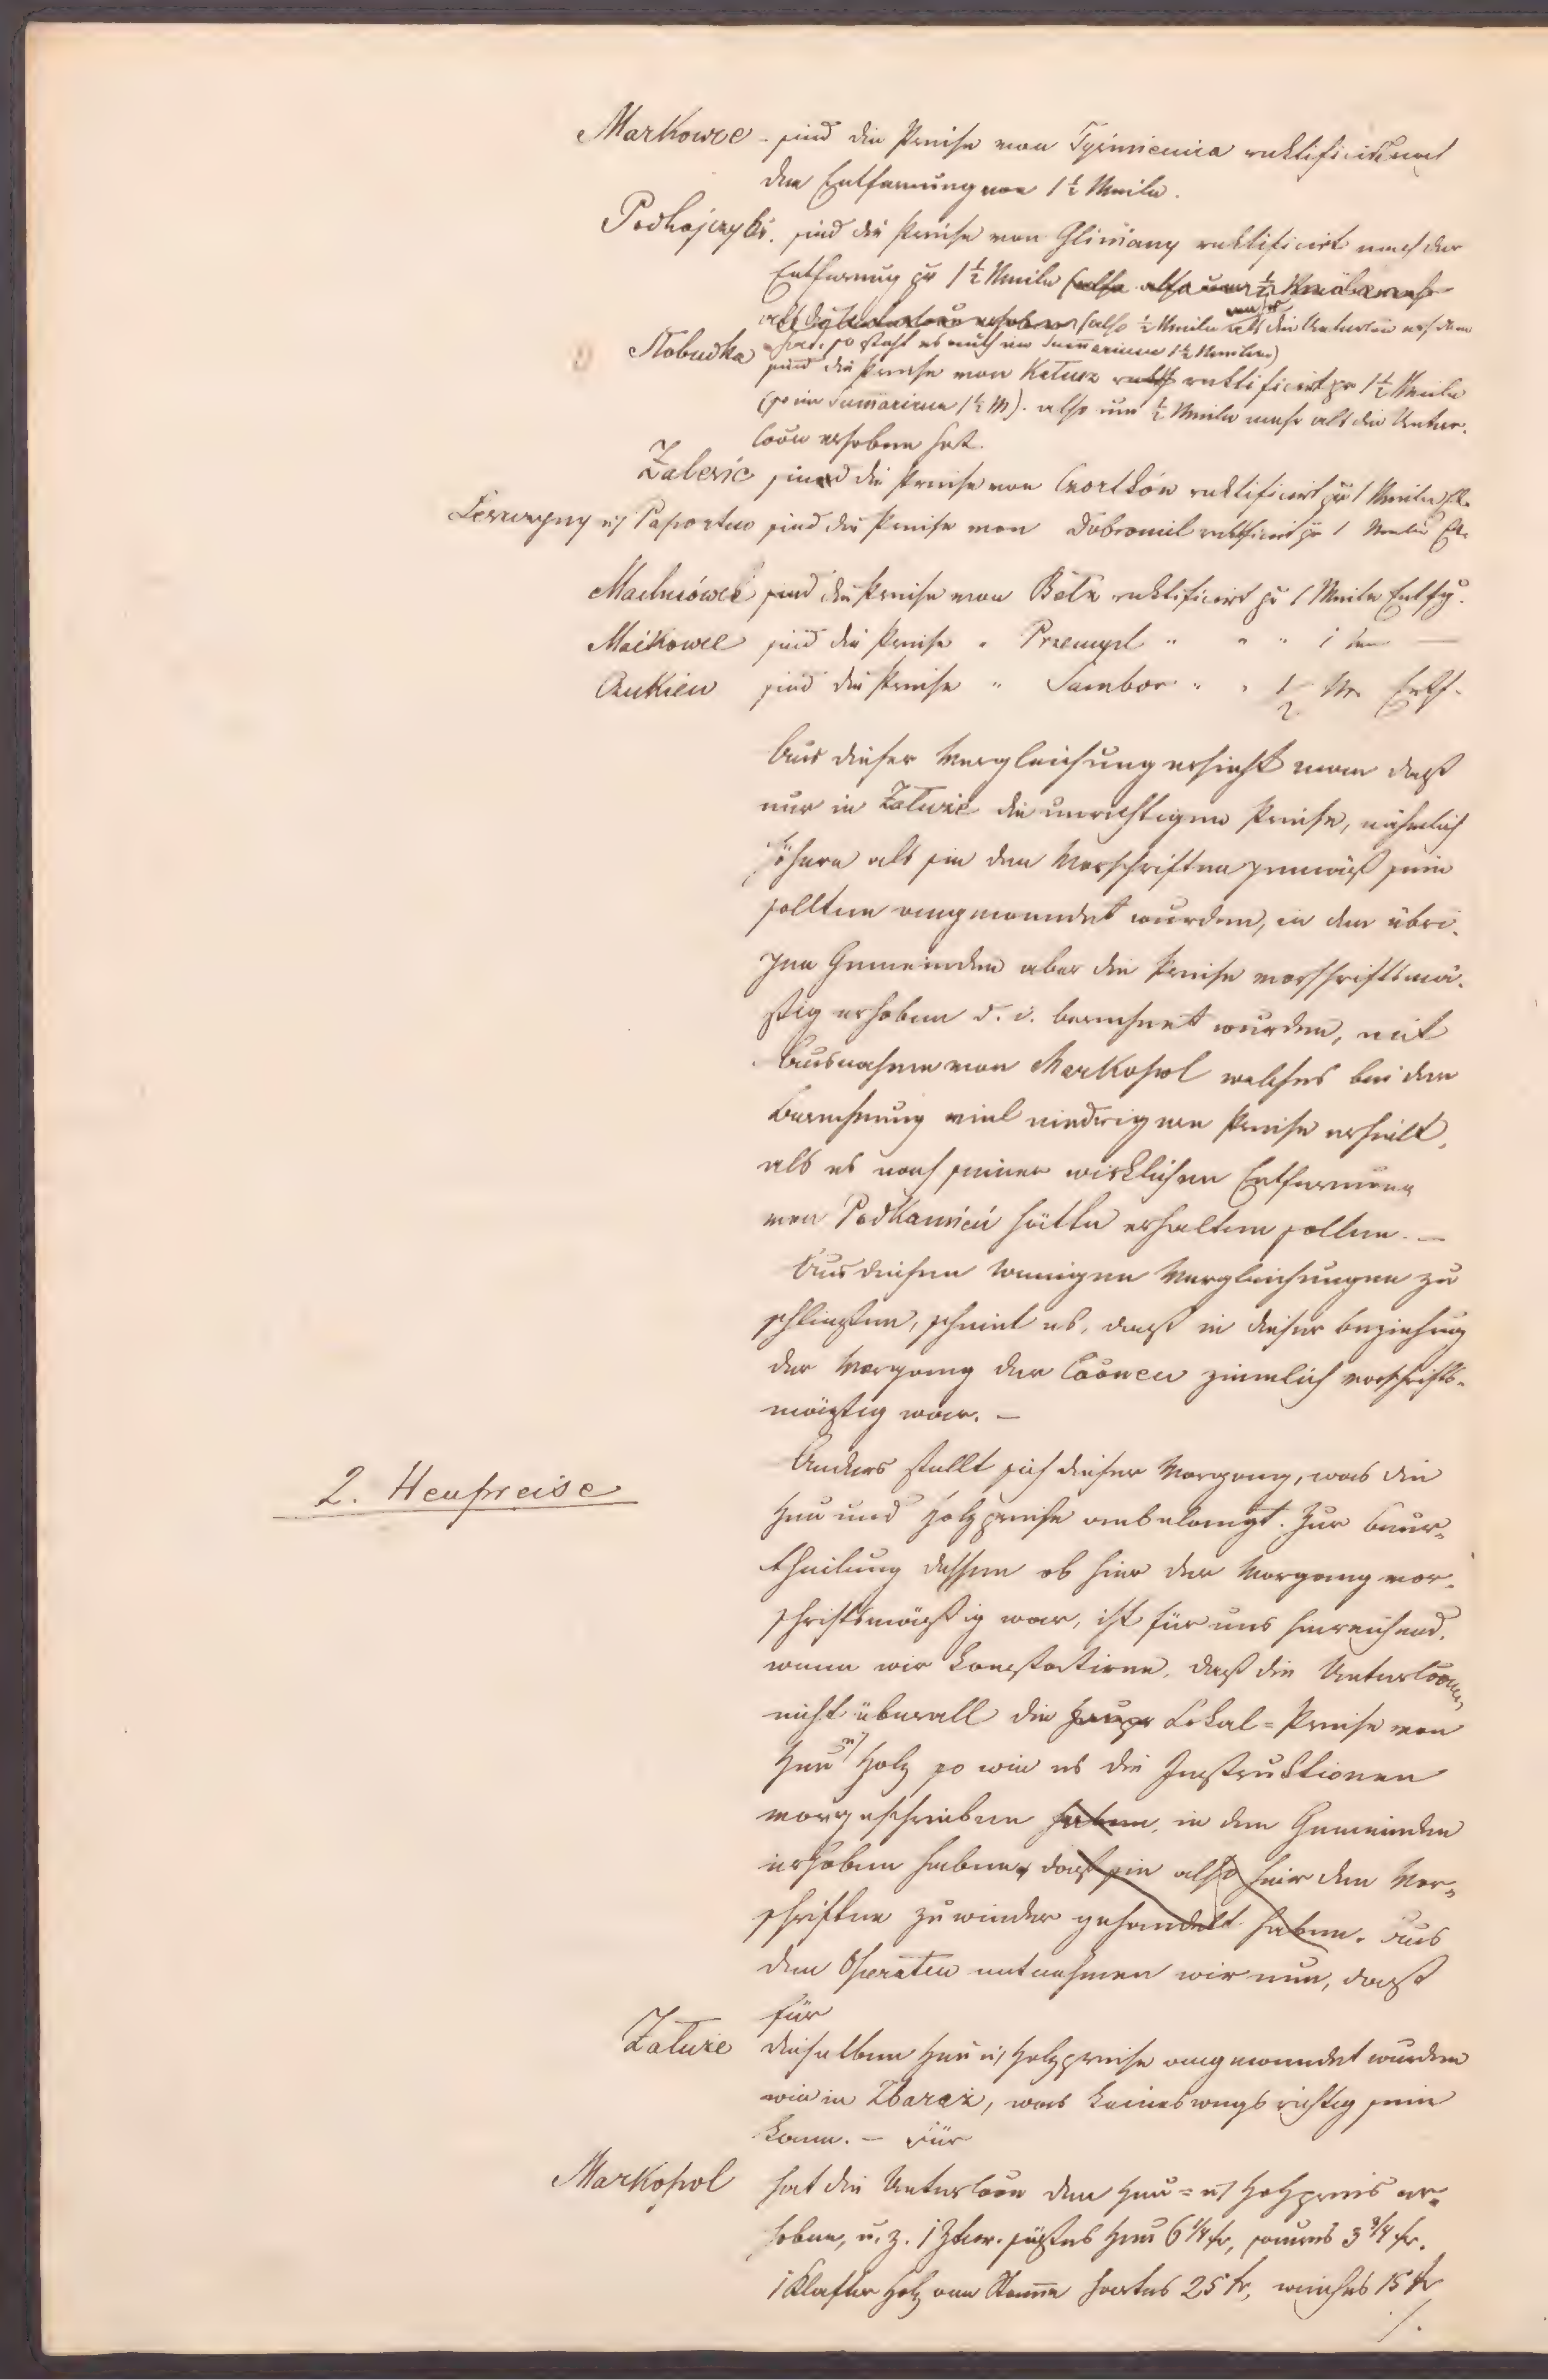 Markowce - sind die Preise von Tyśmienica rektificirt nach
der Entfernung von 1½ Meile.
Podhajczyki. sind die Preise von Gliniany rektificirt nach der
Entfernung pr 1½ Meile (also um ½ Meile mehr
als die Untercoon erhoben (also ½ Meile mehr als die Untercoon erhoben
hat, so steht es auch im Summarium 1½ Meilen)
Słobudka sind die Preise von Kałusz rektificirt pr 1½ Meile
(so im Sumarium 1½ M). also um ½ Meile mehr als die Unter-
coon erhoben hat.
Zalesie sind die Preise von Czortków rektificirt pr 1 Meile Etf.
u/ Paportno sind die Preise von Dobromil rektificirt pr 1 Meile Etf.
Machnówek sind die Preise von Bełz rektificirt pr 1 Meile Entfg.
Maćkowce sind die Preise " Przemysl " " " 1 —
Czukiew sind die Preise " Sambor " " ½ M. Entf.
Aus dieser Vergleichung ersieht man daß
nur in Załuże die unrichtigen Preise, nähmlich
höhere als sie den Vorschriften gemäß sein
sollten angewendet wurden, in den übri-
gen Gemeinden aber die Preise vorschriftsmä-
ßig erhoben d. i. berechnet wurden, mit
Ausnahme von Markopol welches bei der
Berechnung viel niedrigere Preise erhielt,
als es nach seiner wirklichen Entfernung
von Podkamień hätte erhalten sollen. —
Aus diesen wenigen Vergleichungen zu
schließen, scheint es, daß in dieser Beziehung
der Vorgang der Coonen ziemlich vorschrifts-
mäßig war. —
2. Heupreise
Anders stellt sich dieser Vorgang, was die
Heu und Holzpreise anbelangt. Zur Beur-
theilung dessen ob hier der Vorgang vor-
schriftsmäßig war, ist für uns hinreichend,
wenn wir konstatiren, daß die Untercoonen
nicht überall die Lokal = Preise von
Heu u/ Holz so wie es die Instruktionen
vorgeschrieben haben, in den Gemeinden
erhoben haben, daß sie also hier den Vor-
schriften zuwieder gehandelt haben. Aus
den Operaten entnehmen wir nun, daß
für
Załuże dieselben Heu u/ Holzpreise angewendet wurden
wie in Zbaraż, was keineswegs richtig sein
kann. — Für
Markopol hat die Untercoon den Heu = u/ Holzpreis er-
hoben, u. z. 1 Ztnr. süßes Heu 6¼ kr, saures 3¾ kr.
1 Klafter Holz am Stamme hartes 25 kr, weiches 15 kr
./.